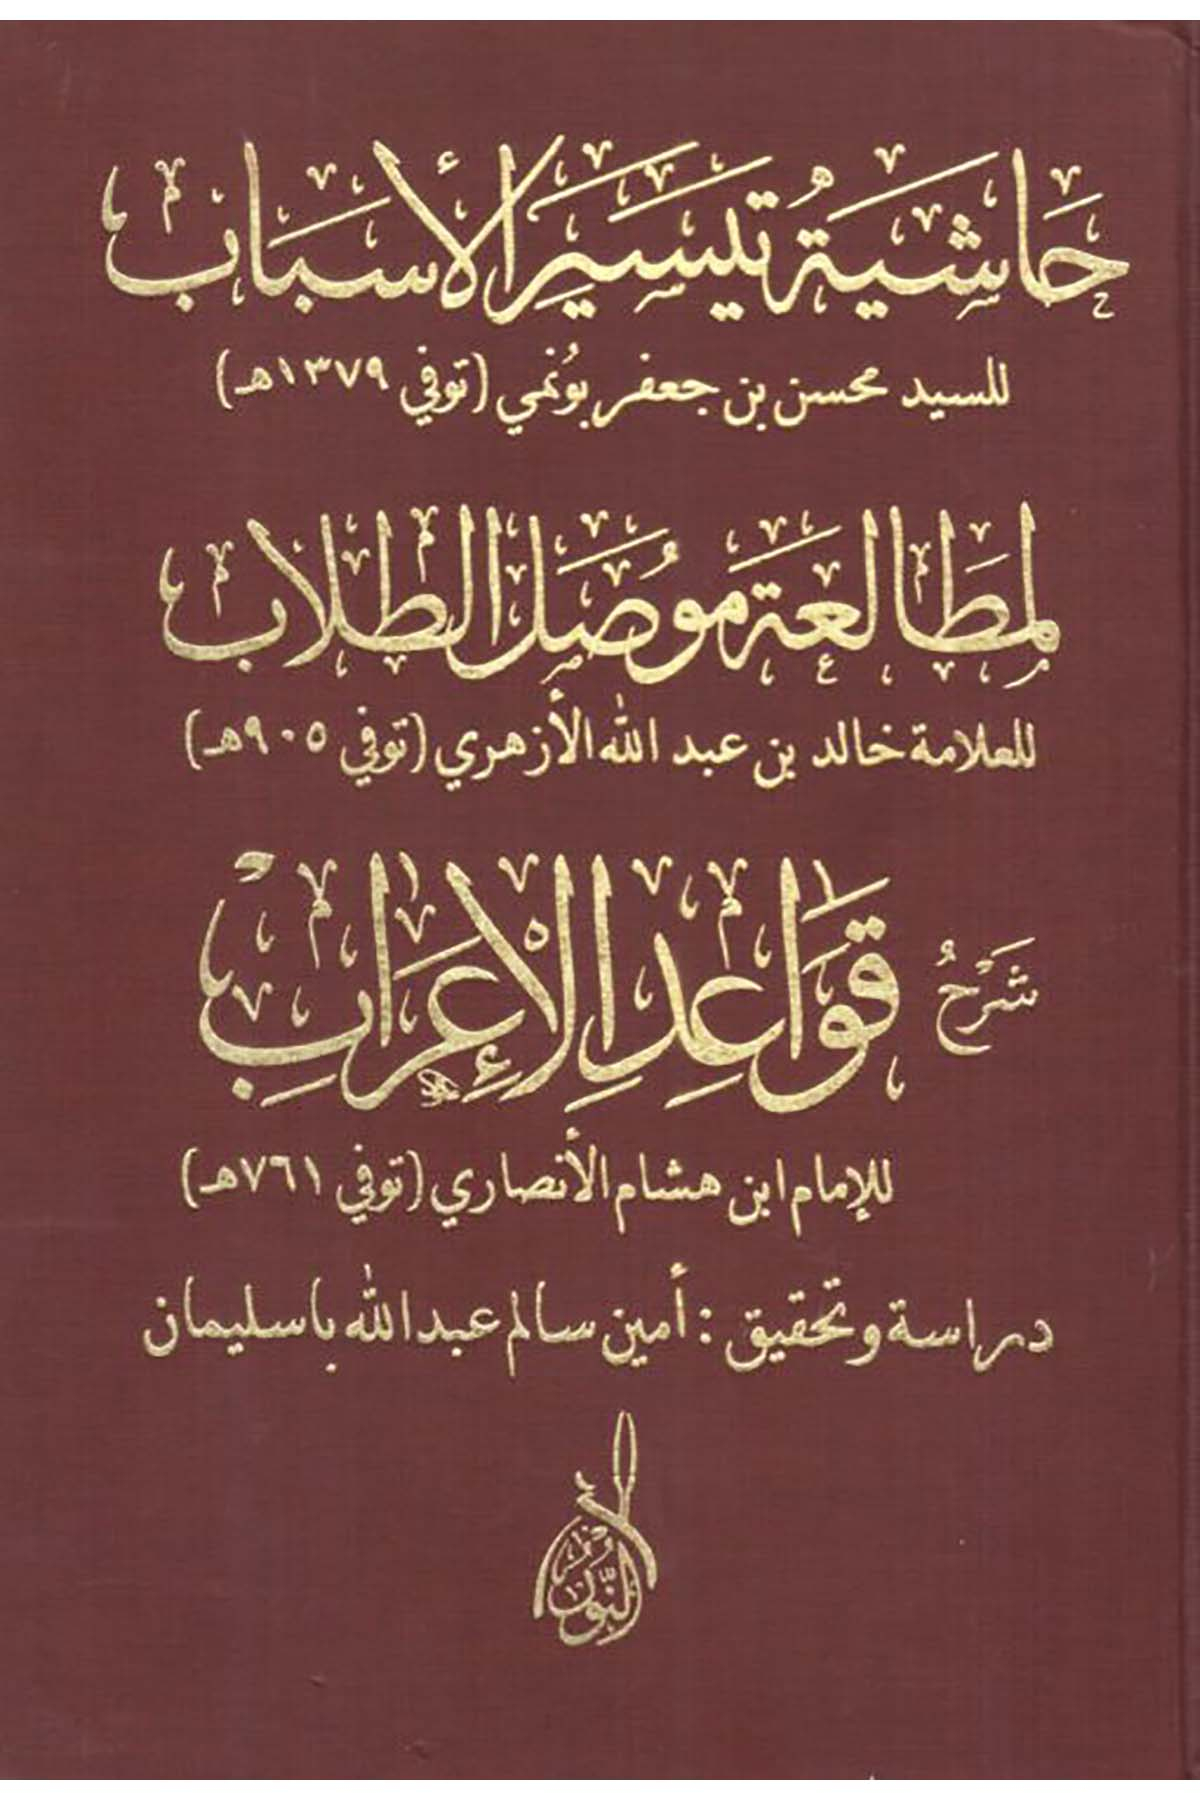 حاشية تيسير الأسباب
للسيد محسن بن جعفر بونمي (توفي ١٣٧٩هـ)
لمطالعة موصل الطلاب
للعلامة خالد بن عبد الله الأزهري (توفي ٩٠٥هـ)
شَرْحُ قَوَاعِدِ الْإِعْرَابِ
للإمام ابن هشام الأنصاري (توفي ٧٦١هـ)
دراسة وتحقيق : أمين سالم عبد الله باسليمان
النور